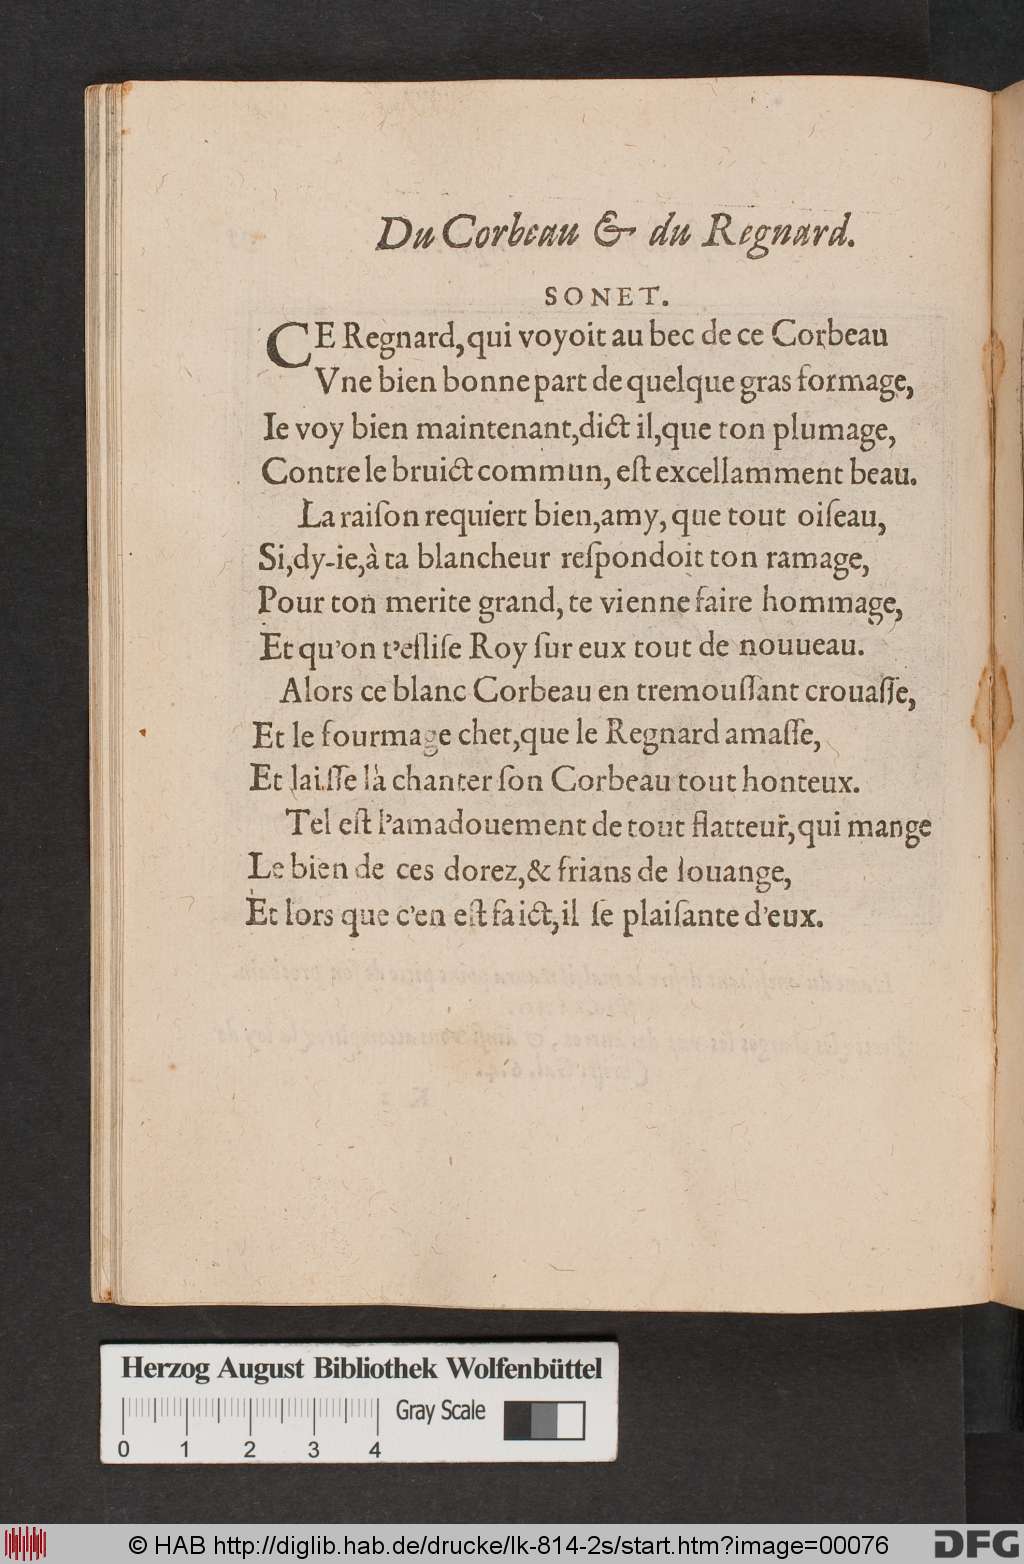 Du Corbeau & du Regnard.
SONET.
CE Regnard, qui voyoit au bec de ce Corbeau
Vne bien bonne part de quelque gras formage,
Ie voy bien maintenant, dict il, que ton plumage,
Contre le bruict commun, eſt excellamment beau.
La raiſon requiert bien, amy, que tout oiſeau,
Si, dy-ie, à ta blancheur reſpondoit ton ramage,
Pour ton merite grand, te vienne faire hommage,
Et qu'on t'eſliſe Roy ſur eux tout de nouueau.
Alors ce blanc Corbeau en tremouſſant crouaſſe,
Et le fourmage chet, que le Regnard amaſſe,
Et laiſſe là chanter ſon Corbeau tout honteux.
Tel eſt l'amadouement de tout flatteur, qui mange
Le bien de ces dorez, & frians de louange,
Et lors que c'en eſt faict, il ſe plaiſante d'eux.
Herzog August Bibliothek Wolfenbüttel
Gray Scale
0 1 2 3 4
© HAB http://diglib.hab.de/drucke/lk-814-2s/start.htm?image=00076
DFG